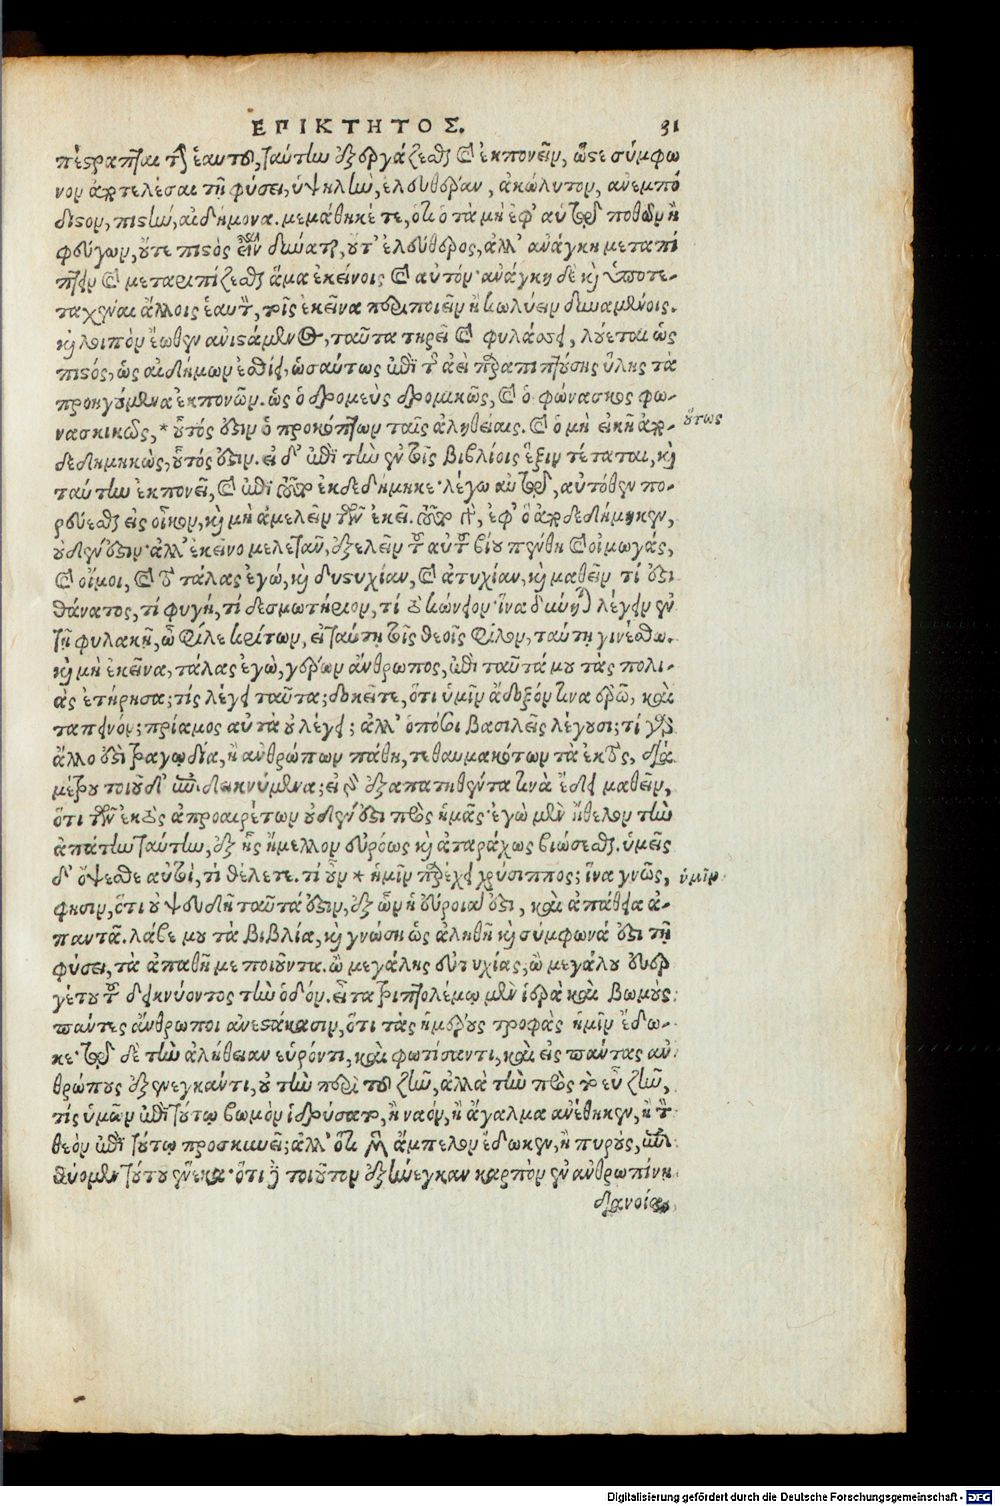 ΕΠΙΚΤΗΤΟΣ. 31
πέστραπται τὴν ἑαυτοῦ, ταύτην ἐξεργάζεσθαι καὶ ἐκπονεῖν, ὥστε σύμφω
νον ἀποτελέσαι τῇ φύσει, ὑψηλὴν, ἐλευθέραν, ἀκώλυτον, ἀνεμπό
διστον, πιστὴν, αἰδήμονα. μεμάθηκέ τε, ὅτι ὁ τὰ μὴ ἐφ' αὑτῷ ποθῶν ἢ
φεύγων, οὔτε πιστὸς εἶναι δύναται, οὔτ' ἐλεύθερος, ἀλλ' ἀνάγκη μεταπί
πτειν καὶ μεταριπίζεσθαι ἅμα ἐκείνοις καὶ αὐτόν· ἀνάγκη δὲ καὶ ὑποτε-
ταχέναι ἄλλοις ἑαυτὸν, τοῖς ἐκεῖνα περιποιεῖν ἢ κωλύειν δυναμένοις.
καὶ λοιπὸν ἕωθεν ἀνιστάμενος, ταῦτα τηρεῖ καὶ φυλάσσει, λούεται ὡς
πιστός, ὡς αἰδήμων ἐσθίει, ὡσαύτως ἐπὶ τῆς ἀεὶ παραπιπτούσης ὕλης τὰ
προηγούμενα ἐκπονῶν. ὡς ὁ δρομεὺς δρομικῶς, καὶ ὁ φώνασκος φω-
νασκικῶς, * οὗτός ἐστιν ὁ προκόπτων ταῖς ἀληθείαις. καὶ ὁ μὴ εἰκῆ ἀπο-
οὕτως
δεδημηκὼς, οὗτός ἐστιν. εἰ δ' ἐπὶ τὴν ἐν τοῖς βιβλίοις ἕξιν τέταται, καὶ
ταύτην ἐκπονεῖ, καὶ ἐπὶ τοῦτο ἐκδεδήμηκε· λέγω αὐτῷ, αὐτόθεν πο-
ρεύεσθαι εἰς οἶκον, καὶ μὴ ἀμελεῖν τῶν ἐκεῖ. τοῦτο γὰρ, ἐφ' ὃ ἀποδεδήμηκεν,
οὐδέν ἐστιν· ἀλλ' ἐκεῖνο μελετᾶν, ἐξελεῖν τοῦ αὑτοῦ βίου πένθη καὶ οἰμωγάς,
καὶ οἴμοι, καὶ τὸ τάλας ἐγώ, καὶ δυστυχίαν, καὶ ἀτυχίαν, καὶ μαθεῖν τί ἐστι
θάνατος, τί φυγή, τί δεσμωτήριον, τί κώνειον· ἵνα δύνηται λέγειν ἐν
τῇ φυλακῇ, ὦ φίλε κρίτων, εἰ ταύτῃ τοῖς θεοῖς φίλον, ταύτῃ γινέσθω.
καὶ μὴ ἐκεῖνα, τάλας ἐγὼ, γέρων ἄνθρωπος, ἐπὶ ταῦτά μου τὰς πολι-
ὰς ἐτήρησα; τίς λέγει ταῦτα; δοκεῖτε, ὅτι ὑμῖν ἄδοξόν τινα ἐρῶ, καὶ
ταπεινόν; πρίαμος αὐτὰ οὐ λέγει; ἀλλ' ὁπόσοι βασιλεῖς λέγουσι; τί γάρ
ἄλλο ἐστὶ τραγῳδία, ἢ ἀνθρώπων πάθη, τεθαυμακότων τὰ ἐκτὸς, διὰ
μέτρου τοιοῦδ' ἐπιδεικνύμενα; εἰ γὰρ ἐξαπατηθέντα τινὰ ἔδει μαθεῖν,
ὅτι τῶν ἐκτὸς ἀπροαιρέτων οὐδέν ἐστι πρὸς ἡμᾶς· ἐγὼ μὲν ἤθελον τὴν
ἀπάτην ταύτην, ἐξ ἧς ἤμελλον εὐρόως καὶ ἀταράχως βιώσεσθαι. ὑμεῖς
δ' ὄψεσθε αὐτοὶ, τί θέλετε. τί οὖν * ἡμῖν παρέχει χρύσιππος; ἵνα γνῶς,
ὑμῖν
φησιν, ὅτι οὐ ψευδῆ ταῦτά ἐστιν, ἐξ ὧν ἡ εὔροιά ἐστι, καὶ ἀπάθεια ἀ-
παντᾶ. λάβε μου τὰ βιβλία, καὶ γνώσῃ ὡς ἀληθῆ καὶ σύμφωνά ἐστι τῇ
φύσει, τὰ ἀπαθῆ με ποιοῦντα. ὢ μεγάλης εὐτυχίας, ὢ μεγάλου εὐερ
γέτου τοῦ δεικνύοντος τὴν ὁδόν. εἶτα τριπτολέμῳ μὲν ἱερὰ καὶ βωμοὺς
πάντες ἄνθρωποι ἀνεστάκασιν, ὅτι τὰς ἡμέρους τροφὰς ἡμῖν ἔδω-
κε· τῷ δὲ τὴν ἀλήθειαν εὑρόντι, καὶ φωτίσαντι, καὶ εἰς πάντας ἀν
θρώπους ἐξενεγκάντι, οὐ τὴν περὶ τὸ ζῆν, ἀλλὰ τὴν πρὸς τὸ εὖ ζῆν,
τίς ὑμῶν ἐπὶ τούτῳ βωμὸν ἱδρύσατο, ἢ ναόν, ἢ ἄγαλμα ἀνέθηκεν, ἢ τὸν
θεὸν ἐπὶ τούτῳ προσκυνεῖ; ἀλλ' ὅτι μὲν ἄμπελον ἔδωκεν, ἢ πυρούς, ἐπι
θύομεν τούτου ἕνεκα· ὅτι δὲ τοιοῦτον ἐξήνεγκαν καρπὸν ἐν ἀνθρωπίνῃ
διανοίᾳ,
Digitalisierung gefördert durch die Deutsche Forschungsgemeinschaft - DFG